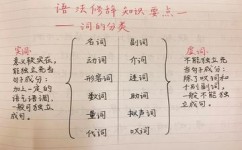 语法修辞知识要点一
——词的分类
实词:
意义较实在,
能独立充当
句子成分;
加上一定的
语气语调,
一般可独立
成句。
名词
动词
形容词
数词
量词
代词
副词
介词
连词
助词
拟声词
叹词
虚词:
不能独立充
当句子成分;
除了叹词和
一般不能独
立成句。